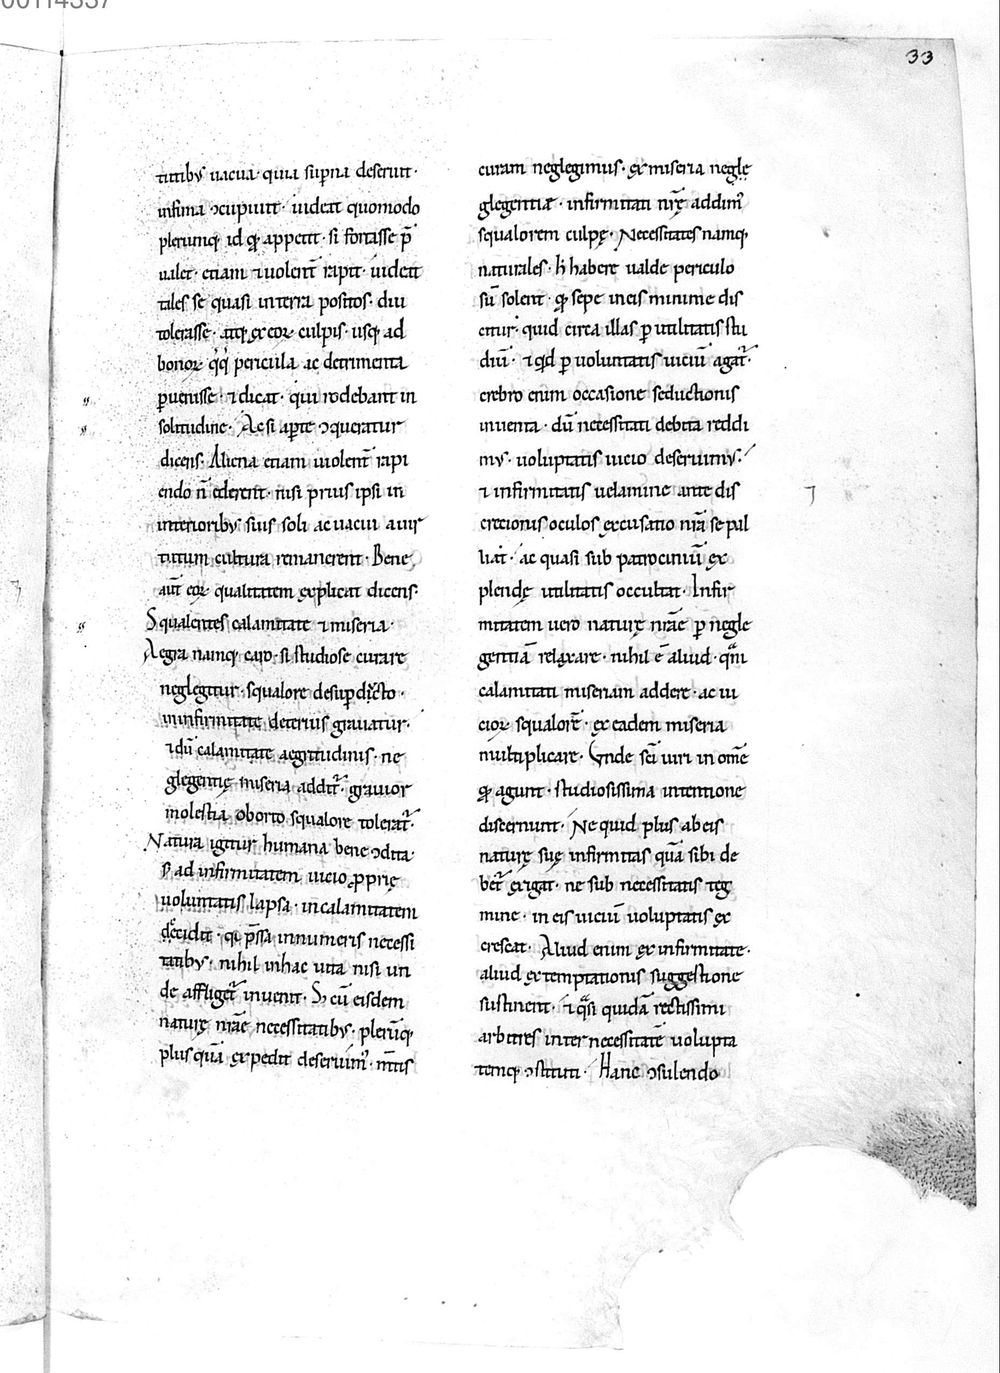 00114337
33
tutibꝫ uacua· quia supna deserunt·
infima ɔcupiunt· uideat quomodo
plerunqꝫ id qđ appetit· si fortasse p̄
ualet· etiam ⁊ uiolent̄ rapit· uideat
tales se quasi in terra positos· diu
tolerasse· atqꝫ ex eoꝝ culpis· usqꝫ ad
bonoꝝ pericula ac detrimenta
ꝑuenisse· ⁊ dicat· qui rodebant in
solitudine· Ac si aꝑte ɔqueratur
dicens· Aliena etiam uiolent̄ rapi
endo n̄ ederent· nisi prius ipsi in
interioribꝫ suis soli ac uacui a uir
tutum cultura remanerent· Bene
aut̄ eoꝝ qualitatem explicat dicens·
Squalentes calamitate ⁊ miseria·
Aegra namqꝫ caro· si studiose curare
neglegitur· squalore desup̱dicto·
in infirmitate deterius grauatur·
⁊ dū calamitate aegritudinis· ne
glegentię miseria addit᷑· grauior
molestia oborto squalore tolerat᷑·
Natura igitur humana bene ɔdita·
s; ad infirmitatem uicio ꝓprię
uoluntatis lapsa· in calamitatem
decidit· quia p̄ssa innumeris necessi
tatibꝫ· nihil in hac uita nisi un
de affliget᷑ inuenit· S; cū eisdem
naturę nr̄ae necessitatibꝫ· plerūqꝫ
plus quā expedit deseruim᷒· mentis
curam neglegimus· ex miseria negle
glegentiæ· infirmitati nr̄ę addim᷒
squalorem culpę· Necessitates namqꝫ
naturales· h̄ habere ualde periculo
sū solent· qđ sepe in eis minime dis
citur· quid circa illas ꝑ utilitatis stu
diū· ⁊ quid ꝑ uoluntatis uiciū agat᷑·
crebro enim occasione seductionis
inuenta· dū necessitati debita reddi
mꝰ· uoluptatis uicio deseruimꝰ·
⁊ infirmitatis uelamine ante dis
cretionis oculos excusatio nr̄a se pal
liat· ac quasi sub patrociniū ex
plendę utilitatis occultat· Infir
mitatem uero naturę nr̄ae ꝑ negle
gentiā relaxare· nihil ē aliud· quam
calamitati miseriam addere· ac ui
cioꝝ squalorē· ex eadem miseria
multiplicare· Unde sc̄i uiri in om̄e
qđ agunt· studiosissima intentione
discernunt· Ne quid plus ab eis
naturę suę infirmitas quā sibi de
bet᷑ exigat· ne sub necessitatis teg
mine· in eis uiciū uoluptatis ex
crescat· Aliud enim ex infirmitate·
aliud ex temptationis suggestione
sustinent· ⁊ quasi quidā rectissimi
arbitres inter necessitatē uolupta
temqꝫ ɔstituti· Hanc ɔsulendo